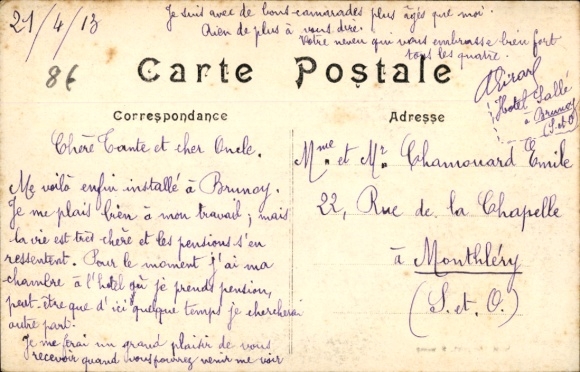 21/4/13
86
Carte Postale
Correspondance
Chère Tante et cher Oncle.
Me voilà enfin installé à Brunoy.
Je me plais bien à mon travail ; mais
la vie est très chère et les pensions s'en
ressentent. Pour le moment j'ai ma
chambre à l'hôtel où je prends pension,
peut-être que d'ici quelque temps je chercherai
autre part.
Je me ferai un grand plaisir de vous
recevoir quand vous pourrez venir me voir
Je suis avec de bons camarades plus âgés que moi.
Rien de plus à vous dire.
Votre neveu qui vous embrasse bien fort
tous les quatre.
Hotel Sallé
à Brunoy
(S.et O)
Adresse
Mme et Mr Chamouard Emile
22, Rue de la Chapelle
à Monthléry
(S. et O.)